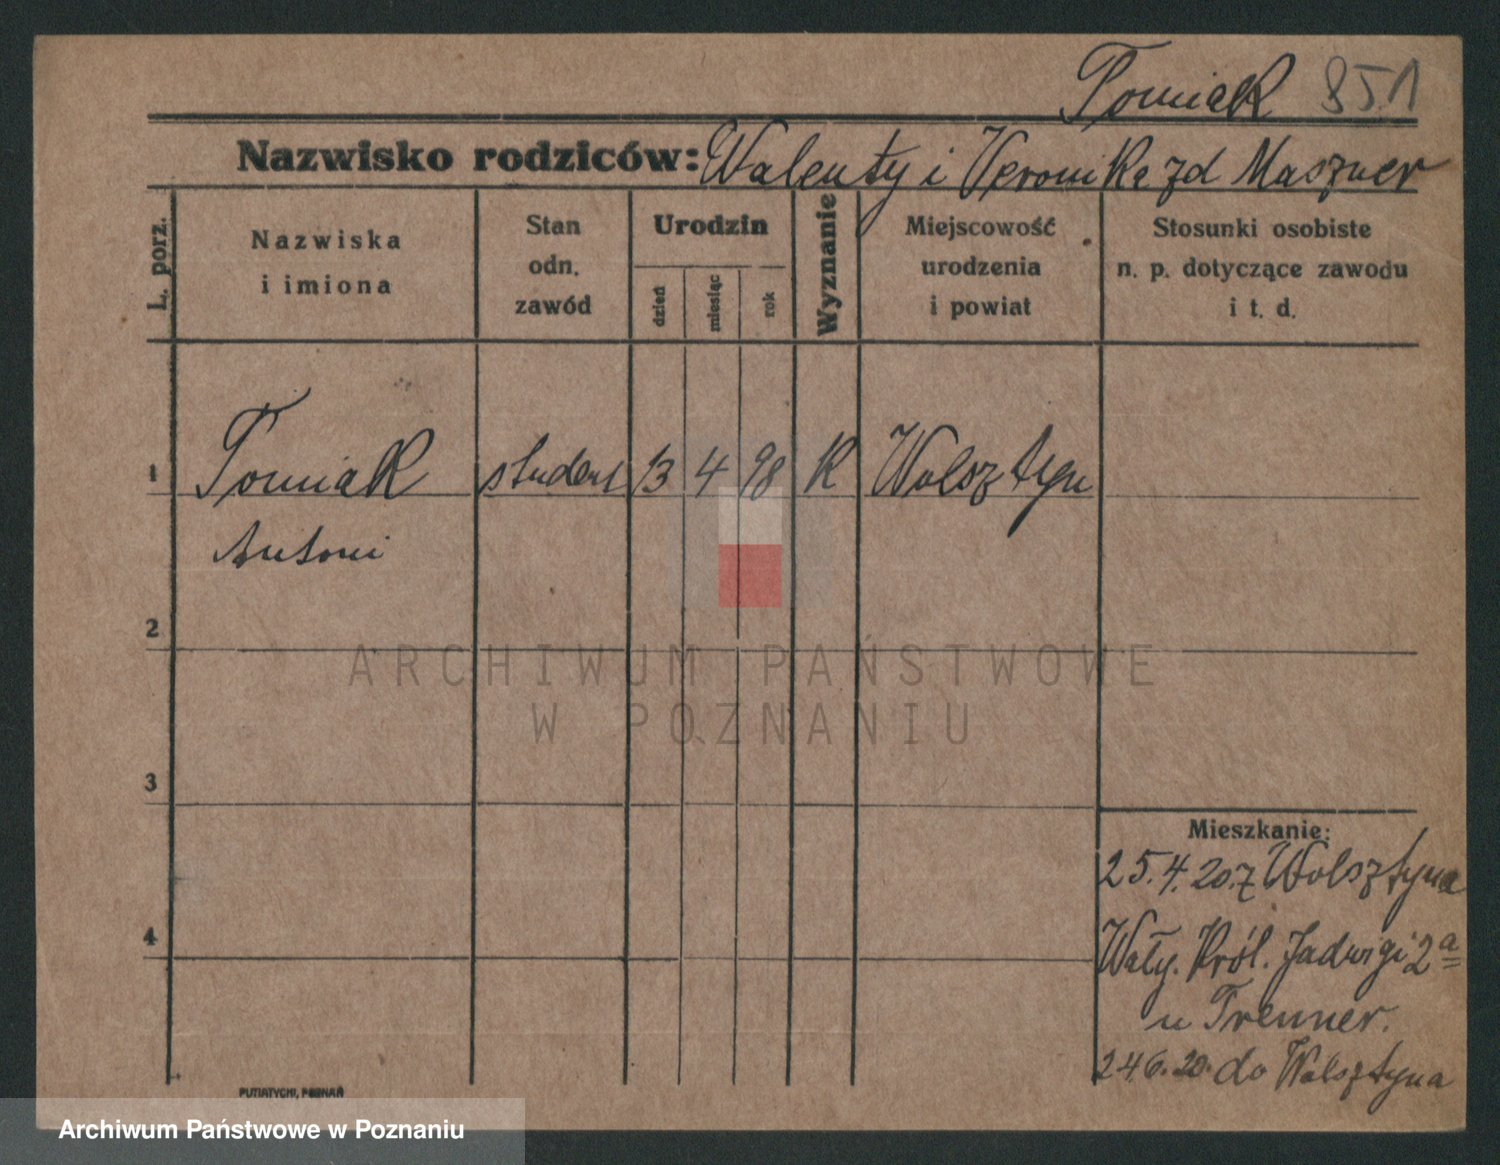 Tomiak 851
Nazwisko rodziców: Walenty i Veronika zd Maszner
L. porz.
Nazwiska
i imiona
Stan
odn.
zawód
Urodzin
dzień
miesiąc
rok
Wyznanie
Miejscowość
urodzenia
i powiat
Stosunki osobiste
n. p. dotyczące zawodu
i t. d.
1 Tomiak student 13 4 98 K Wolsztyn
Antoni
2
3
4
ARCHIWUM PAŃSTWOWE
W POZNANIU
Mieszkanie:
25.4.20.z Wolsztyna
Wały. Król. Jadwigi 2a
u Trenner.
24.6.20. do Wolsztyna
PUTIATYCKI, POZNAŃ
Archiwum Państwowe w Poznaniu